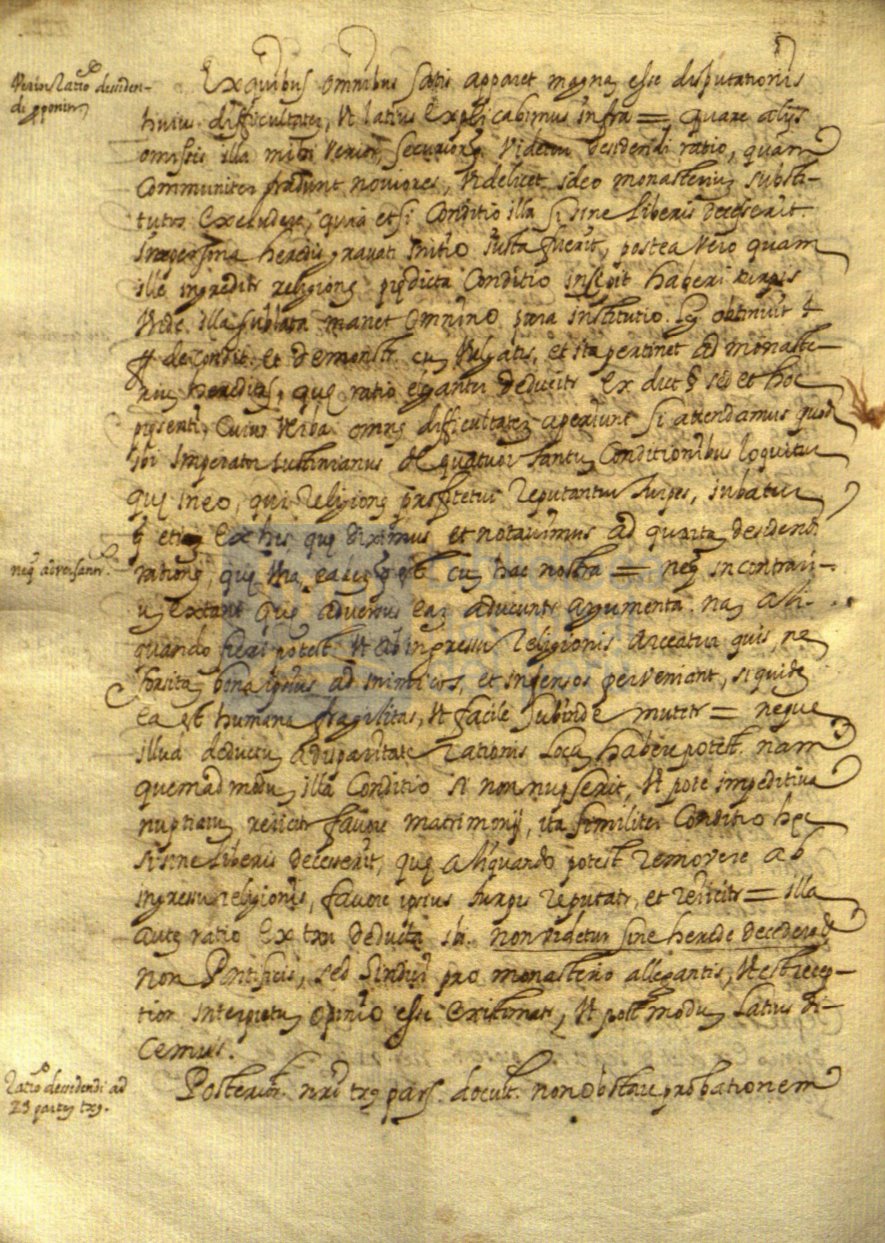 Verior Ratio desiden-
di pponitur
Ex quibus omnibus satis apparet magnã esse disputationis
huius difficultatem, Vt latius Explicabimus infra = quare alijs
omissis illa mihi Verior, securior videtur desidendi ratio, quam
Communiter tradunt noviores, Videlicet ideo monasterium substi-
tutos Excludere, quia etsi Conditio illa si sine liberis decesserit
In persona heredis gravati initio iusta fuerit, postea Vero quam
ille ingreditr religionẽ prędicta Conditio incipit haberi turpis
Vnde illa sublata manet omnino pura institutio
ff de Condit. et demonstr. cũ Vulgatis, et ita pertinet ad monaste-
rium hereditas, quę ratio eleganter deducitr Ex dict § sed et hoc
pręsenti, Cuius Verba omnẽ difficultatem aperiunt si attendamus quod
ibi Imperator Iustinianus de quatuor tantũ Conditionibus loquitur
quę in eo, qui religionẽ profitetur reputantur turpes, iubatur
etiã Ex his quę diximus et notavimus ad quartã desidendi
neq adversantr.
rationẽ, quę cũ hac nostra = neq in contrari-
ũ Extant quę adversus eam aducuntr argumenta. nam ali-
quando fieri potest Vt ab ingressu religionis arceatur quis, ne
forsitã bona ipsius ad inimicos, et infensos perveniant, siquidẽ
ea est humana fragilitas, Vt facile subinde mutetr = neque
illud deductũ a disparitate rationis locũ habere potest. nam
quemadmodũ illa Conditio si non nupserit, Vt pote impeditiva
nuptiarũ reiicitr favore matrimonij, ita similiter Conditio hęc
si sine liberis decesserit, quę aliquando potest removere ab
ingressu religionis, favore ipsius turpis reputatr, et reiicitr = illa
autẽ ratio Ex txu deducta ibi. non videtur sine herede decedere
non Pontificis, sed Sindici pro monasterio allegantis, Vt est recep-
tior interpretũ opinio esse Existimatr, Vt post modũ latius di-
cemus.
Ratio desidendi ad
2ã partẽ txq.
Posterior txq pars docuit non obstare probationem